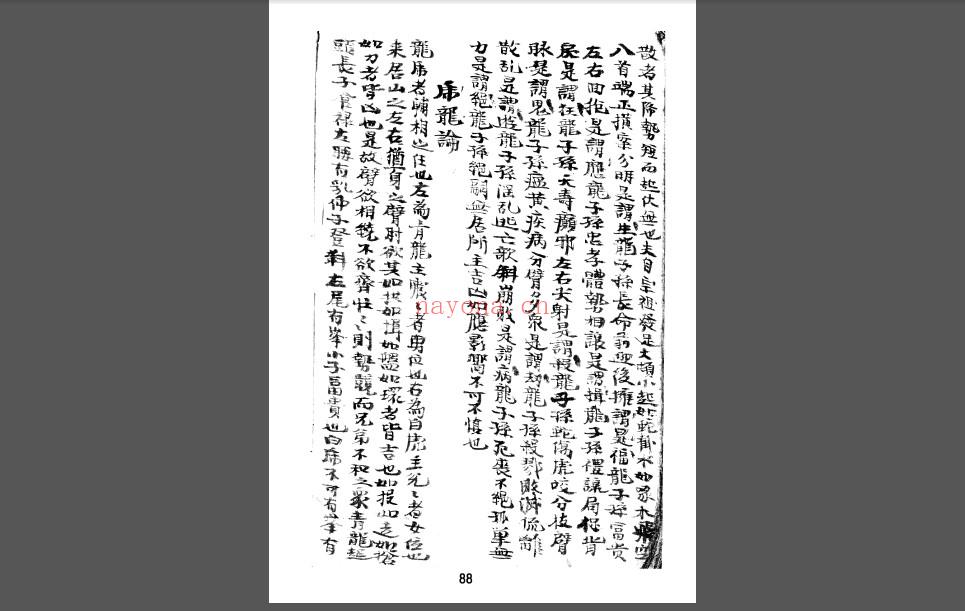 散者其降勢短而起伏無也夫自宗祖發足大頓小起如蛇
八首端正橫案分明是謂生龍子孫長命前迎後擁謂是福龍子孫富貴
左右曲抱是謂應龍子孫忠孝體勢相讓是謂揖龍子孫禮讓局促背
戾是謂狂龍子孫夭壽癲邪左右尖射是謂殺龍子孫蛇傷虎咬分枝臂
脉是謂鬼龍子孫瘟黃疾病分臂多衆是謂劫龍子孫殺戮敗滅流離
散乱是謂遊龍子孫淫乱逃亡歌斜崩敗是謂病龍子孫危喪不絕孤單無
力是謂絕龍子孫絕嗣無居所主吉凶如應影響不可不慎也
虎龍論
龍虎者輔相之任也左為青龍主
者男位也右為白虎主
者女位也
来居山之左右猶身之臂肘欲其如拱如揖如盤如環者皆吉也如捉如走如
如刀者皆凶也是故臂欲相繞不欲齊
則勢競而兄弟不和之象青龍
頭長子食祿左腰有乳仲子登科左尾有峯小子富貴也白虎不可有峯有
nayona.cn
88